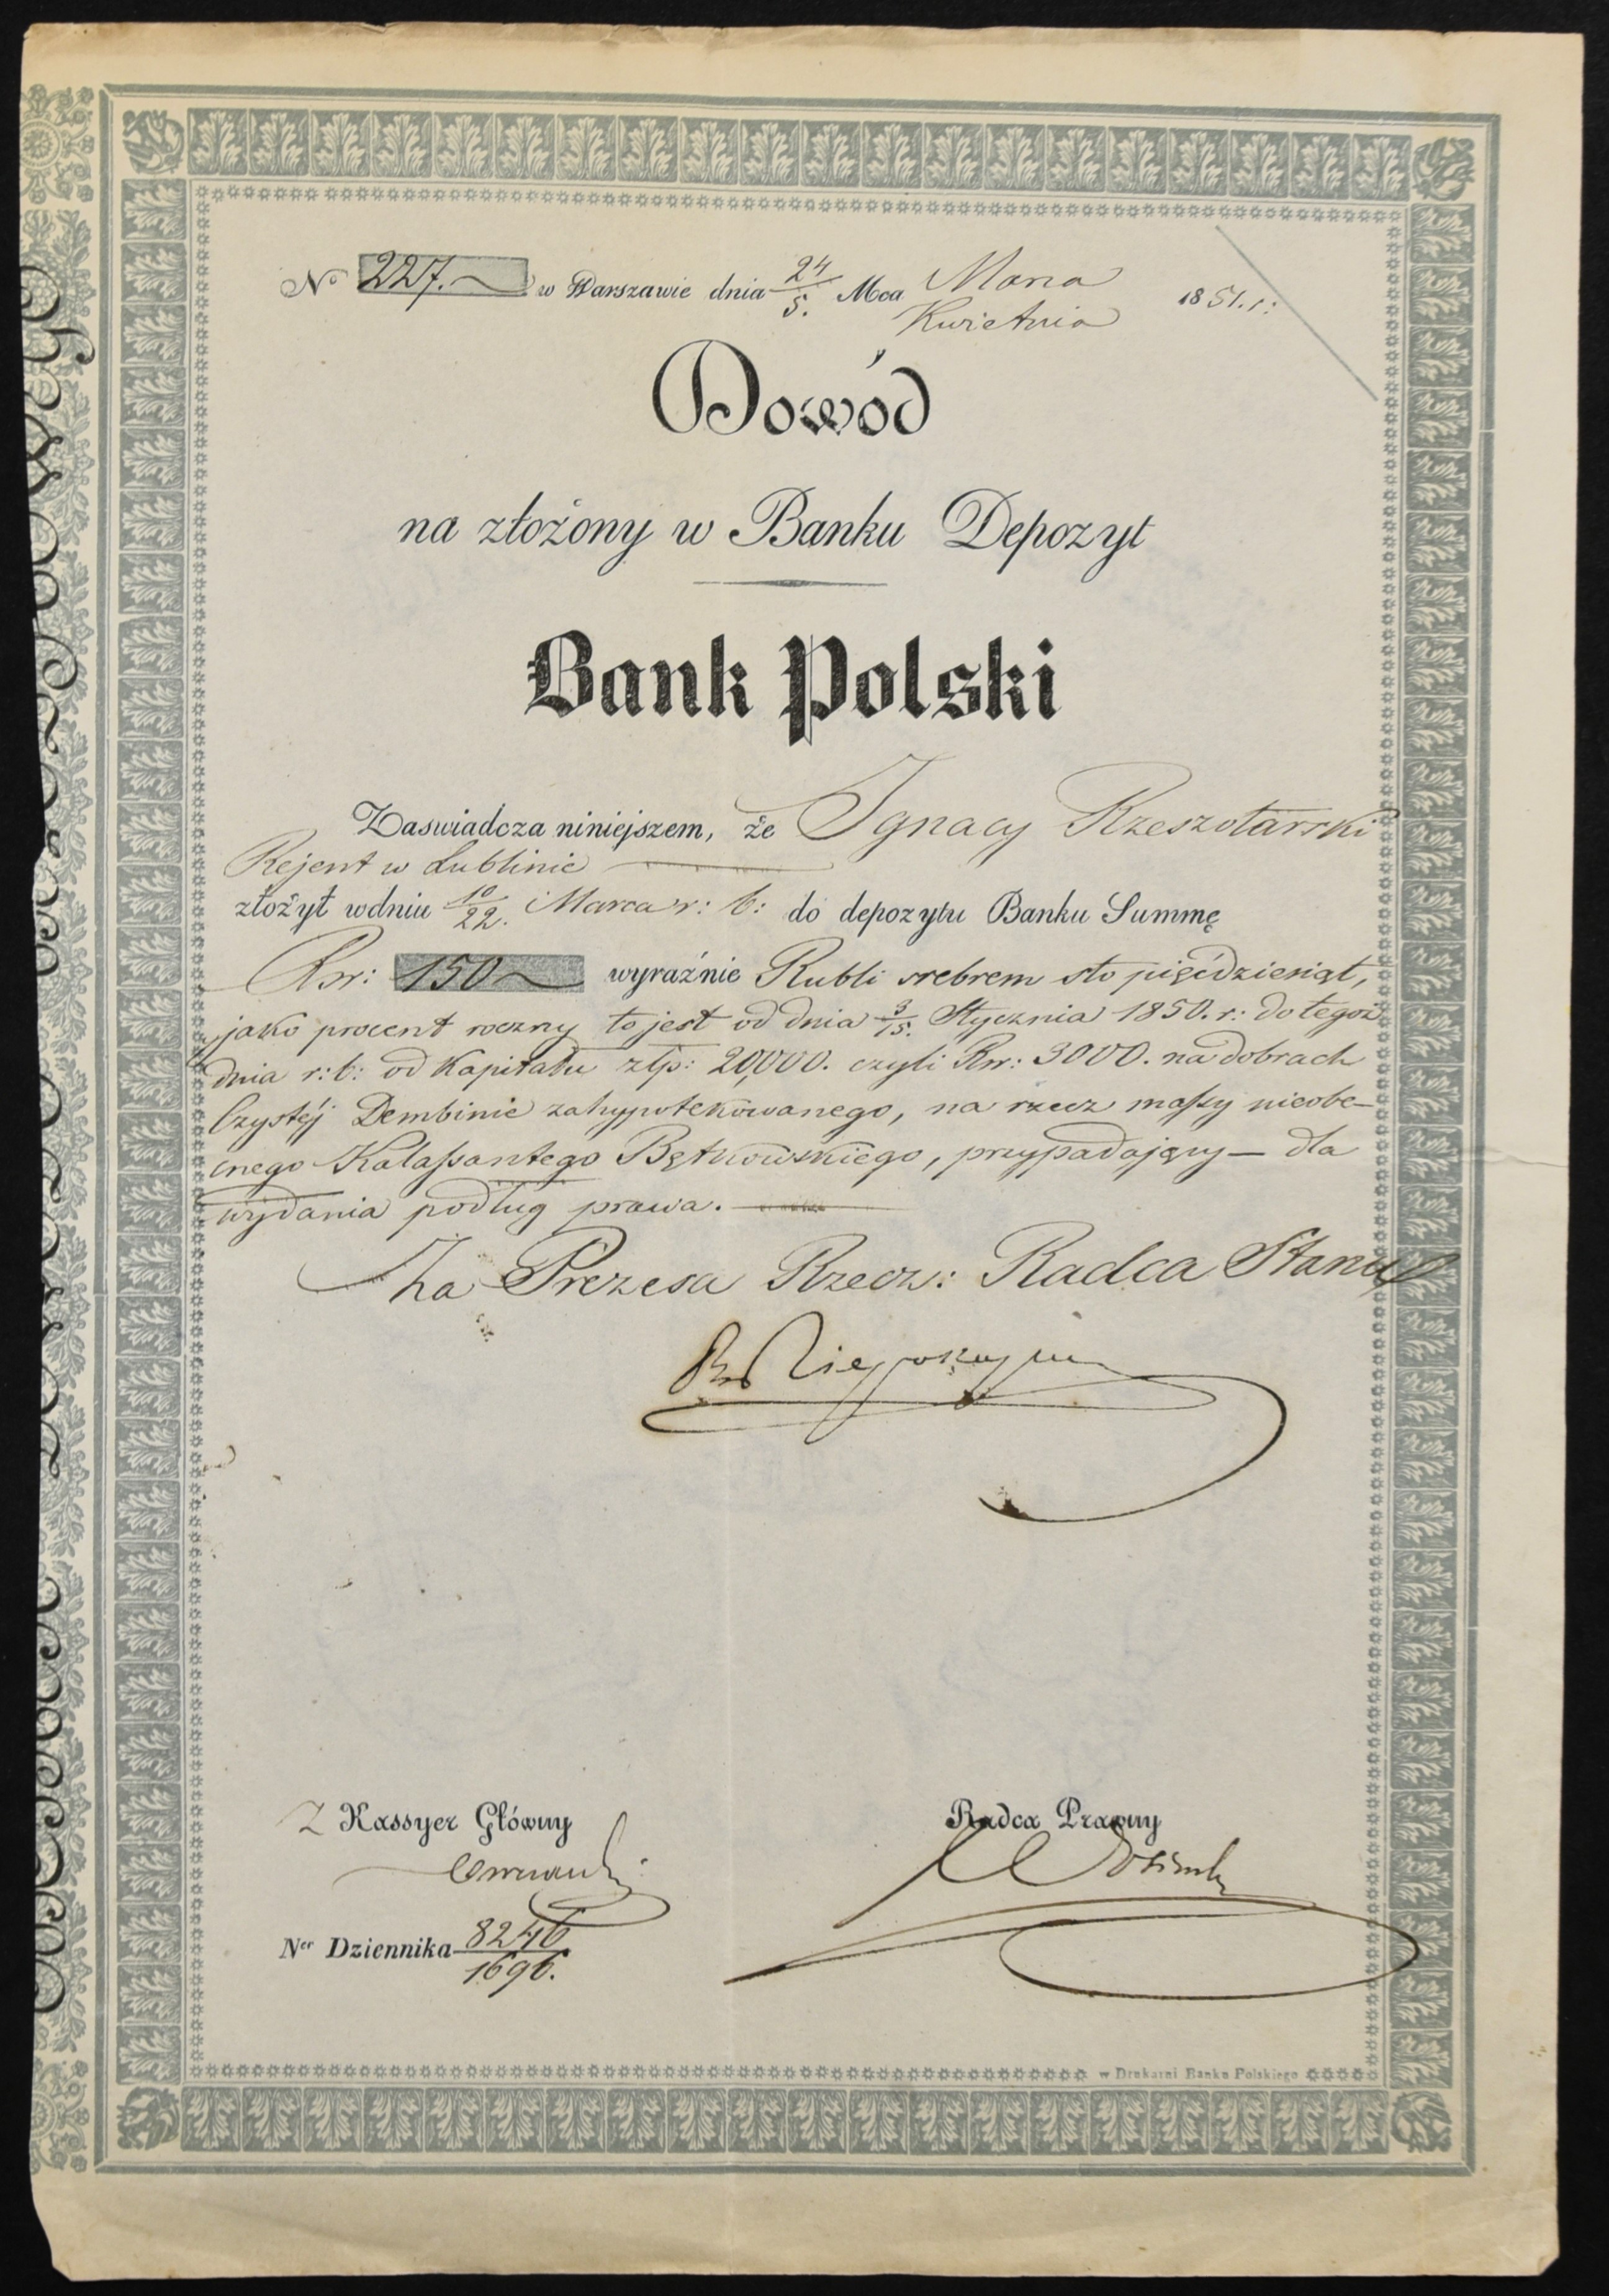 No 227. w Warszawie dnia 24/5. Mca Marca/Kwietnia 1851. r:
Dowód
na złożony w Banku Depozyt
Bank Polski
Zaswiadcza niniejszem, że Ignacy Rzeszotarski
Rejent w Lublinie
złożył w dniu 10/22. Marca r: b: do depozytu Banku Summę
Rsr: 150 wyraźnie Rubli srebrem sto pięćdziesiąt,
jako procent roczny to jest od dnia 3/15. Stycznia 1850. r: do tegoż
dnia r: b: od Kapitału złp: 20,000. czyli Rsr: 3000. na dobrach
Czystéj Dembinie zahypotekowanego, na rzecz massy nieobe-
cnego Kalassantego Bętkowskiego, przypadający — dla
wydania podług prawa.
Za Prezesa Rzecz: Radca Stanu
Z Kassyer Główny
Radca Prawny
Ner Dziennika 8246/1696.
w Drukarni Banku Polskiego